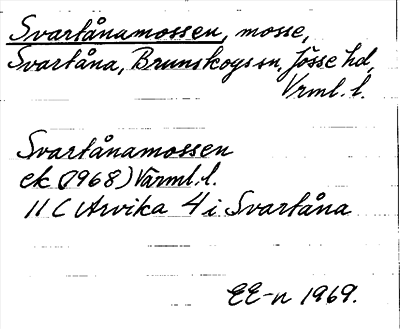 Svartånamossen, mosse,
Svartåna, Brunskogs sn, Jösse hd,
Vrml. l.
Svartånamossen
ek (1968) Värml. l.
11 C Arvika 4 i Svartåna
EE-n 1969.